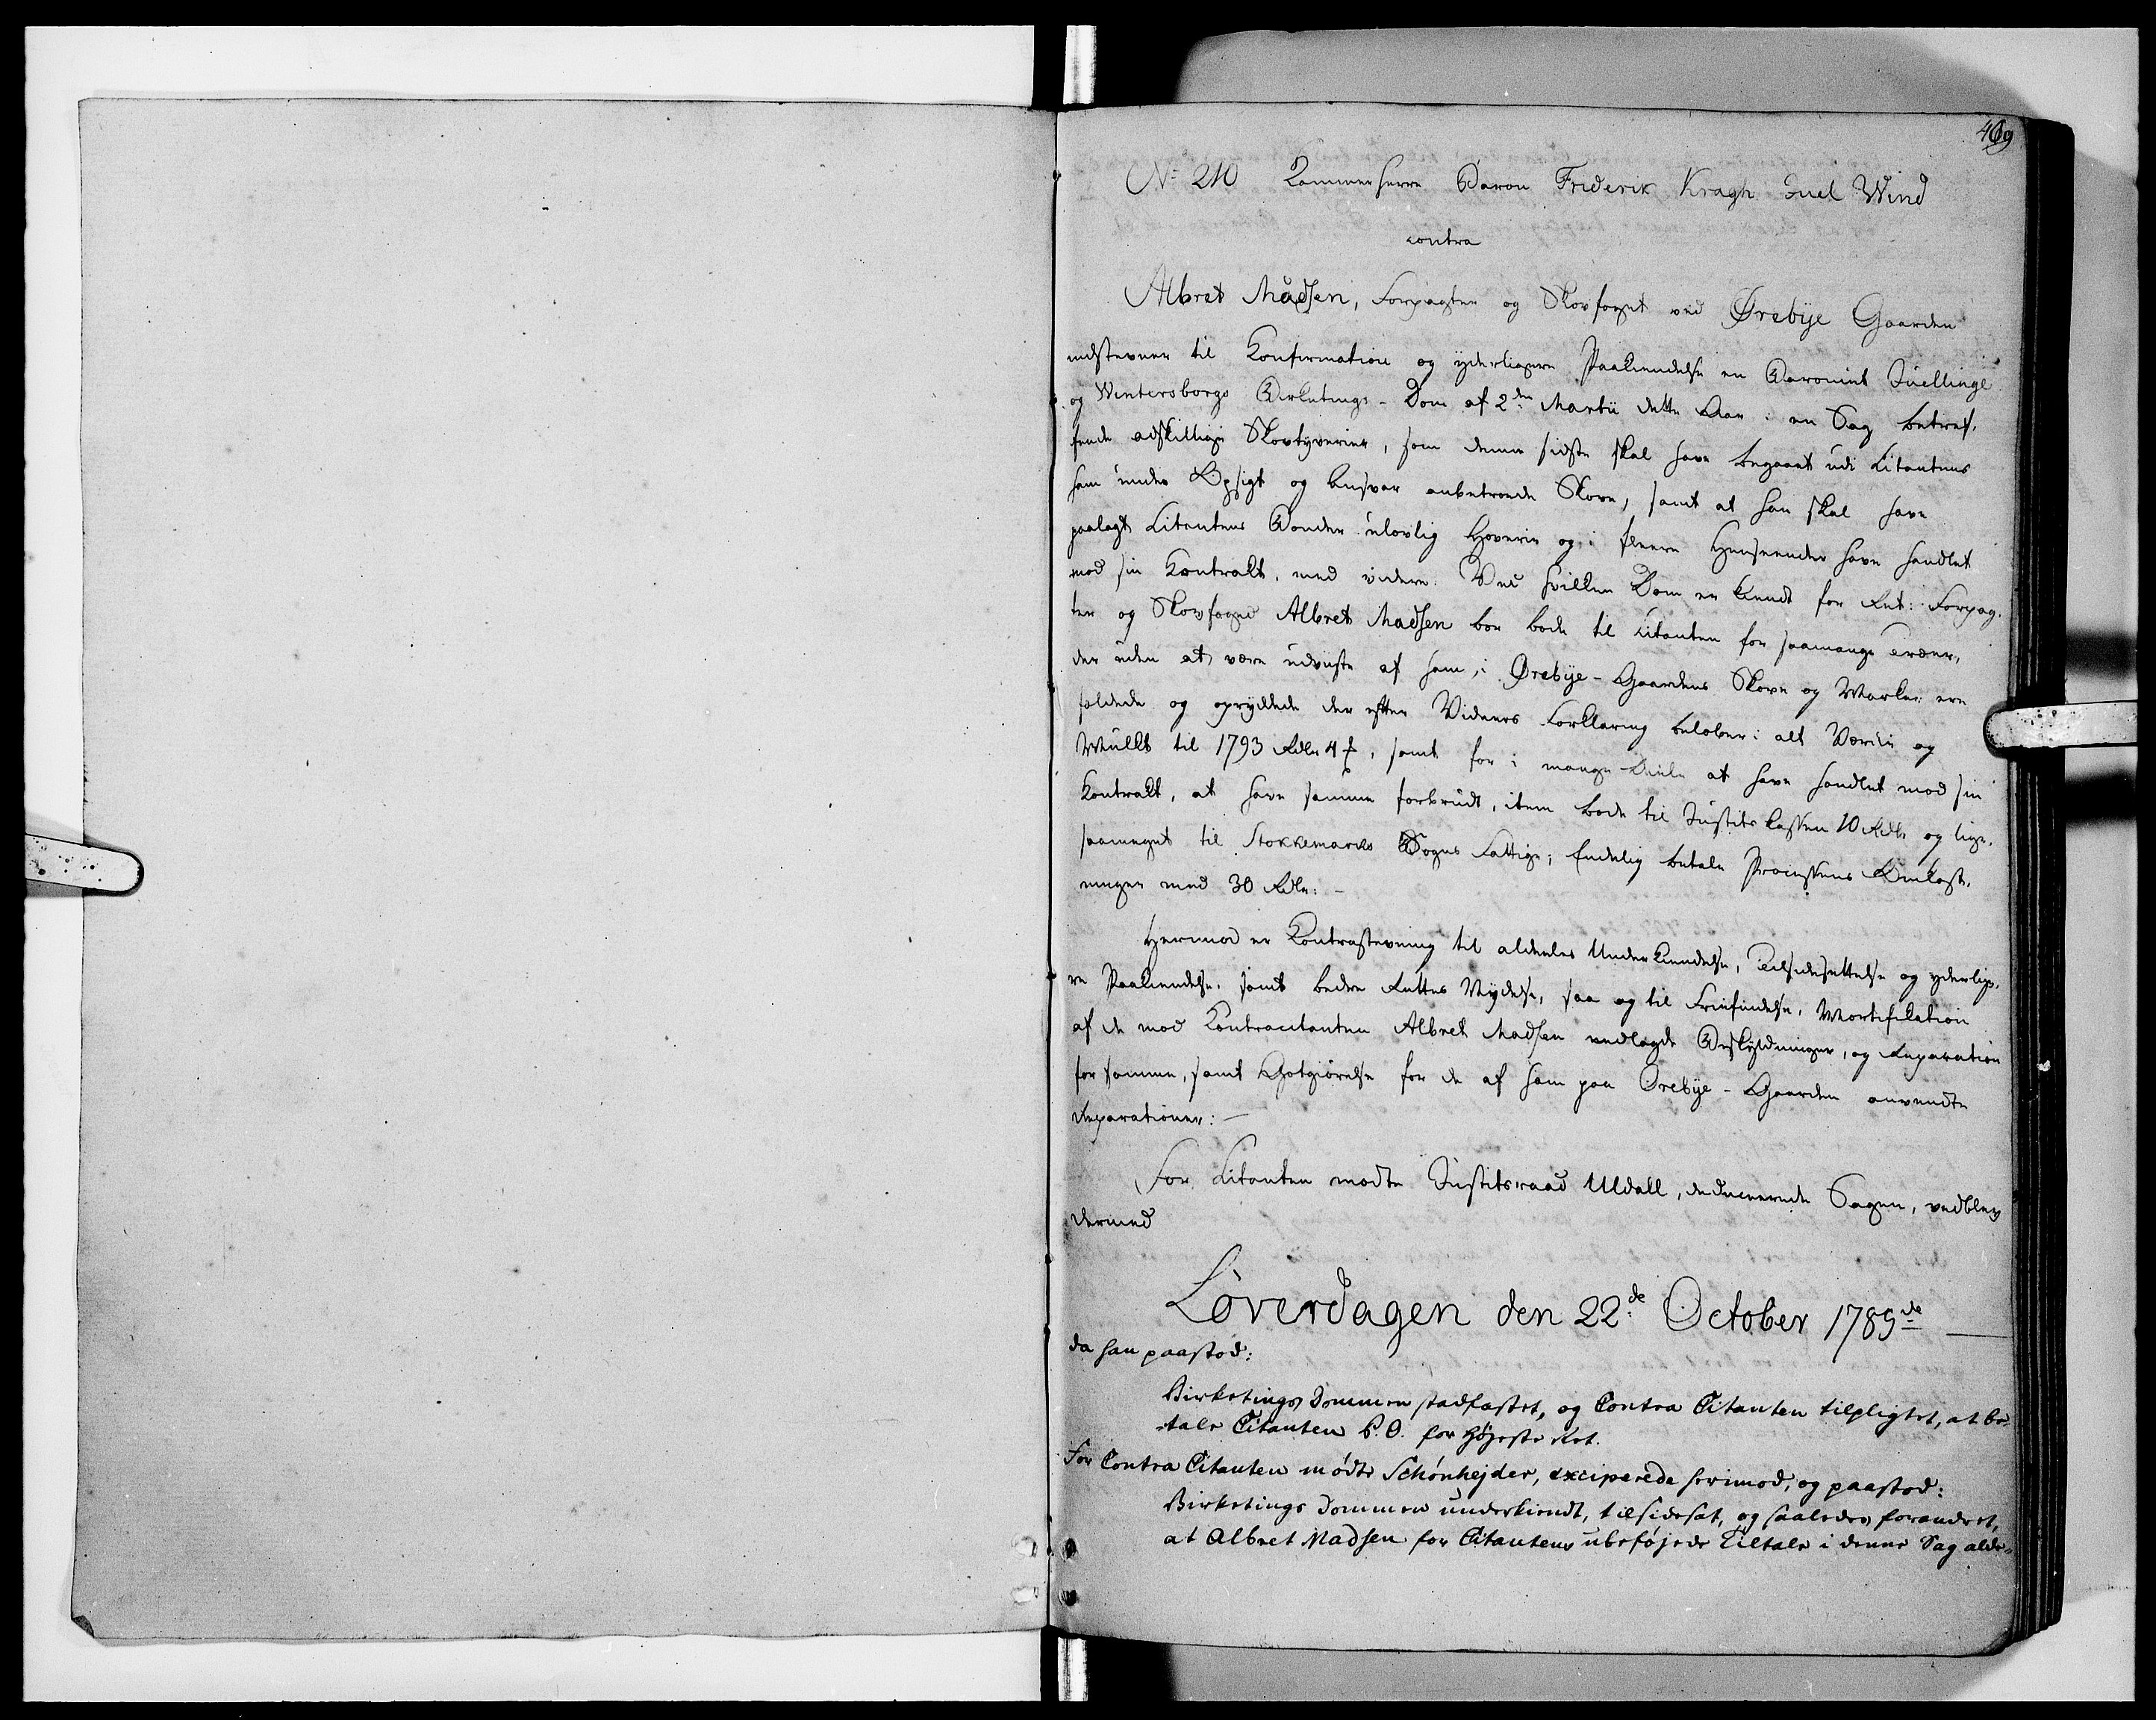 469
No 210 Kammerherre Baron Friderik Kragh Juel Wind
contra
Albret Madsen, Forpagter og Skovfoget ved Ørebÿe Gaarden
indstevner til Confirmation og ÿderligere Paakiendelse en Baroniet Juellinge
og Wintersborgs Birketings-Dom af 2den Martii dette Aar i en Sag betref-
fende adskillige Skovtyverier, som denne sidste skal have begaaet udi Citantens
ham under Opsigt og Ansvar anbetroede Skove, samt at han skal have
paalagt Citantens Bønder ulovlig Hoverie og i fleere Henseender have handlet
mod sin Contrakt, med videre. Ved hvilken Dom er kiendt for Ret: Forpag-
ter og Skovfoged Albret Madsen bør bøde til Citanten for saamange Træer,
der uden at være udviiste af ham, i Ørebÿe-Gaardens Skove og Marker ere
fældede og oprÿddede der efter Vidners Forklaring beløber i alt Værdie og
Mulkt til 1793 Rdlr 4 ß, samt for i mange Deele at have handlet mod sin
Contrakt, at have samme forbrudt, item bøde til Justitskassen 10 Rdlr og lige-
saameget til Stokkemarks Sogns Fattige; Endelig betale Processens Omkost-
ninger med 30 Rdlr: -
Hermod er Contrastevning til aldeeles Underkiendelse, Tilsidesettelse og ÿderlige-
re Paakiendelse, samt bedre Rettes Nydelse, saa og til Friefindelse, Mortification
af de mod Contracitanten Albret Madsen nedlagde Beskÿldninger, og Reparation
for samme, samt Godtgiørelse for de af ham paa Ørebÿe-Gaarden anvendte
Reparationer: -
For Citanten mødte Justitsraad Uldall, deducerende Sagen, vedblev
dermed
Løverdagen den 22de October 1785de
da han paastod:
Birketings Dommen stadfæstet, og Contra Citanten tilpligtet, at be-
tale Citanten P. O. for Højeste Ret.
For Contra Citanten mødte Schønhejder, exciperede herimod, og paastod:
Birketings Dommen underkiendt, tilsidesat, og saaledes forandret,
at Albret Madsen for Citantens ubeføjede Tiltale i denne Sag alde-